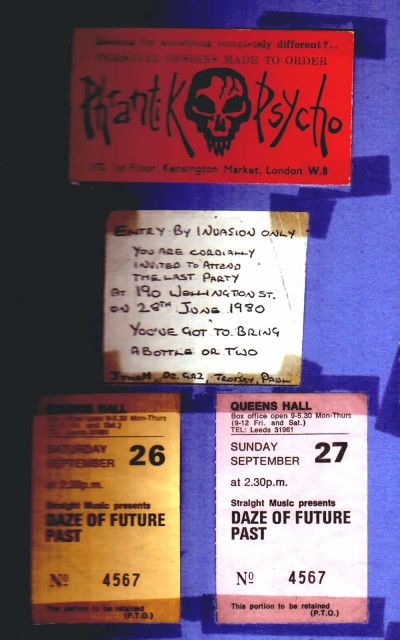 Looking for something completely different?..
PERSONAL DESIGNS MADE TO ORDER
Phrantik Psycho
1st Floor, Kensington Market, London W.8
ENTRY BY INVASION ONLY
YOU ARE CORDIALLY
INVITED TO ATTEND
THE LAST PARTY
AT 190 WELLINGTON ST.
ON 28TH JUNE 1980
YOU'VE GOT TO BRING
A BOTTLE OR TWO
TROTSKY, PAUL
QUEENS HALL
Box office open 9-5.30 Mon-Thurs
(9-12 Fri. and Sat.)
Leeds 31961
SATURDAY
SEPTEMBER 26
at 2.30p.m.
Straight Music presents
DAZE OF FUTURE
PAST
No 4567
This portion to be retained
(P.T.O.)
QUEENS HALL
Box office open 9-5.30 Mon-Thurs
(9-12 Fri. and Sat.)
TEL: Leeds 31961
SUNDAY
SEPTEMBER 27
at 2.30p.m.
Straight Music presents
DAZE OF FUTURE
PAST
No 4567
This portion to be retained
(P.T.O.)